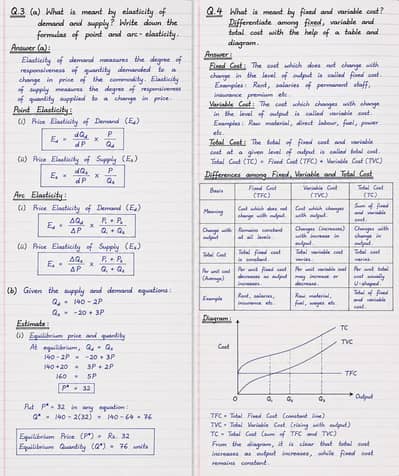 Q.3 (a) What is meant by elasticity of
demand and supply? Write down the
formulas of point and arc-elasticity.
Answer (a):
Elasticity of demand measures the degree of
responsiveness of quantity demanded to a
change in price of the commodity. Elasticity
of supply measures the degree of responsiveness
of quantity supplied to a change in price.
Point Elasticity:
(i) Price Elasticity of Demand (Ed)
Ed = dQd/dP × P/Qd
(ii) Price Elasticity of Supply (Es)
Es = dQs/dP × P/Qs
Arc Elasticity:
(i) Price Elasticity of Demand (Ed)
Ed = ΔQd/ΔP × P1 + P2/Q1 + Q2
(ii) Price Elasticity of Supply (Es)
Es = ΔQs/ΔP × P1 + P2/Q1 + Q2
(b) Given the supply and demand equations:
Qd = 140 - 2P
Qs = -20 + 3P
Estimate:
(i) Equilibrium price and quantity
At equilibrium, Qd = Qs
140 - 2P = -20 + 3P
140 + 20 = 3P + 2P
160 = 5P
P* = 32
Put P* = 32 in any equation:
Q* = 140 - 2(32) = 140 - 64 = 76
Equilibrium Price (P*) = Rs. 32
Equilibrium Quantity (Q*) = 76 units
Q.4 What is meant by fixed and variable cost?
Differentiate among fixed, variable and
total cost with the help of a table and
diagram.
Answer:
Fixed Cost: The cost which does not change with
change in the level of output is called fixed cost.
Examples: Rent, salaries of permanent staff,
insurance premium etc.
Variable Cost: The cost which changes with change
in the level of output is called variable cost.
Examples: Raw material, direct labour, fuel, power
etc.
Total Cost: The total of fixed cost and variable
cost at a given level of output is called total cost.
Total Cost (TC) = Fixed Cost (TFC) + Variable Cost (TVC)
Differences among Fixed, Variable and Total Cost
Basis | Fixed Cost (TFC) | Variable Cost (TVC) | Total Cost (TC)
Meaning | Cost which does not change with output. | Cost which changes with output. | Sum of fixed and variable cost.
Change with output | Remains constant at all levels. | Changes (increases) with increase in output. | Changes with change in output.
Total Cost | Total fixed cost is constant. | Total variable cost varies. | Total cost varies.
Per unit cost (Average) | Per unit fixed cost decreases as output increases. | Per unit variable cost may increase or decrease. | Per unit total cost usually U-shaped.
Example | Rent, salaries, insurance etc. | Raw material, fuel, wages etc. | Total of fixed and variable cost.
Diagram:
Cost
TC
TVC
TFC
O Q1 Q2 Output
TFC = Total Fixed Cost (constant line)
TVC = Total Variable Cost (rising with output)
TC = Total Cost (sum of TFC and TVC)
From the diagram, it is clear that total cost
increases as output increases, while fixed cost
remains constant.